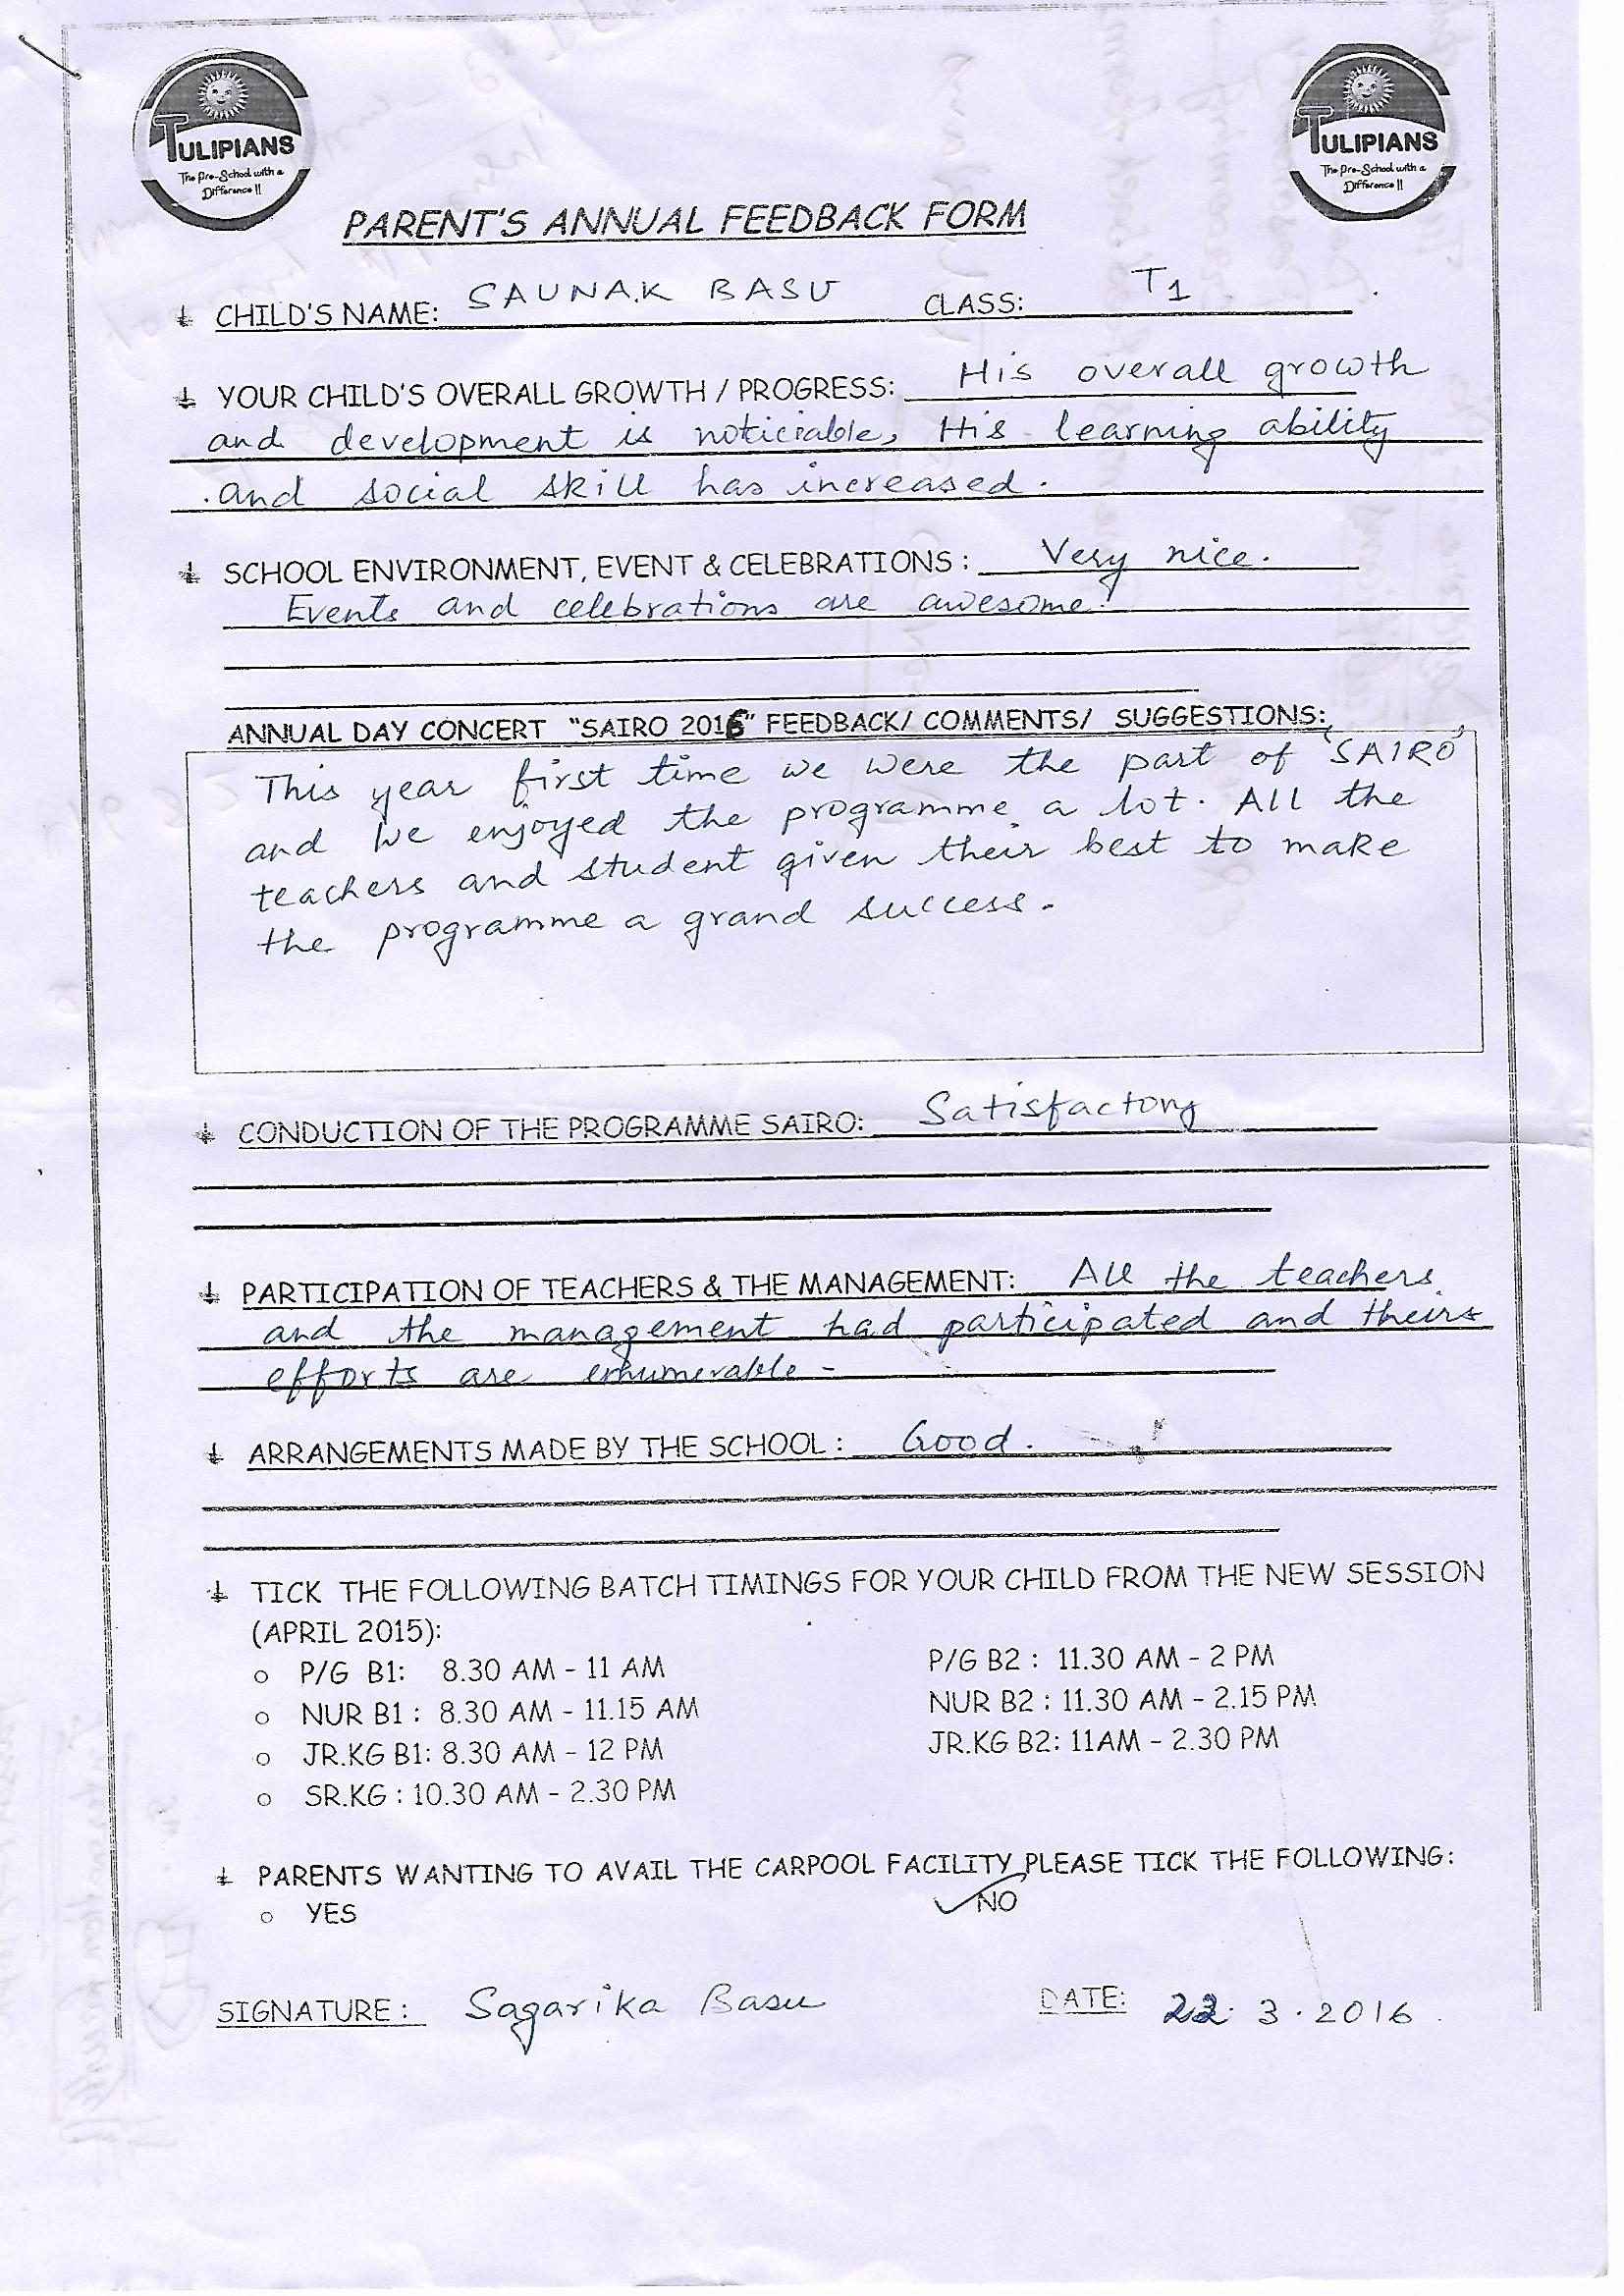 TULIPIANS
The Pre-School with a
Difference !!
TULIPIANS
The Pre-School with a
Difference !!
PARENT'S ANNUAL FEEDBACK FORM
CHILD'S NAME: SAUNAK BASU CLASS: T1
YOUR CHILD'S OVERALL GROWTH / PROGRESS: His overall growth
and development is noticiable, His learning ability
and social skill has increased.
SCHOOL ENVIRONMENT, EVENT & CELEBRATIONS : Very nice.
Events and celebrations are awesome.
ANNUAL DAY CONCERT "SAIRO 2016" FEEDBACK/ COMMENTS/ SUGGESTIONS:
This year first time we were the part of 'SAIRO'
and we enjoyed the programme a lot. All the
teachers and student given their best to make
the programme a grand success.
CONDUCTION OF THE PROGRAMME SAIRO: Satisfactory
PARTICIPATION OF TEACHERS & THE MANAGEMENT: All the teachers
and the management had participated and theirs
efforts are enumerable -
ARRANGEMENTS MADE BY THE SCHOOL : Good.
TICK THE FOLLOWING BATCH TIMINGS FOR YOUR CHILD FROM THE NEW SESSION
(APRIL 2015):
P/G B1: 8.30 AM - 11 AM P/G B2 : 11.30 AM - 2 PM
NUR B1 : 8.30 AM - 11.15 AM NUR B2 : 11.30 AM - 2.15 PM
JR.KG B1: 8.30 AM - 12 PM JR.KG B2: 11AM - 2.30 PM
SR.KG : 10.30 AM - 2.30 PM
PARENTS WANTING TO AVAIL THE CARPOOL FACILITY PLEASE TICK THE FOLLOWING:
YES ✓NO
SIGNATURE : Sagarika Basu DATE: 22.3.2016